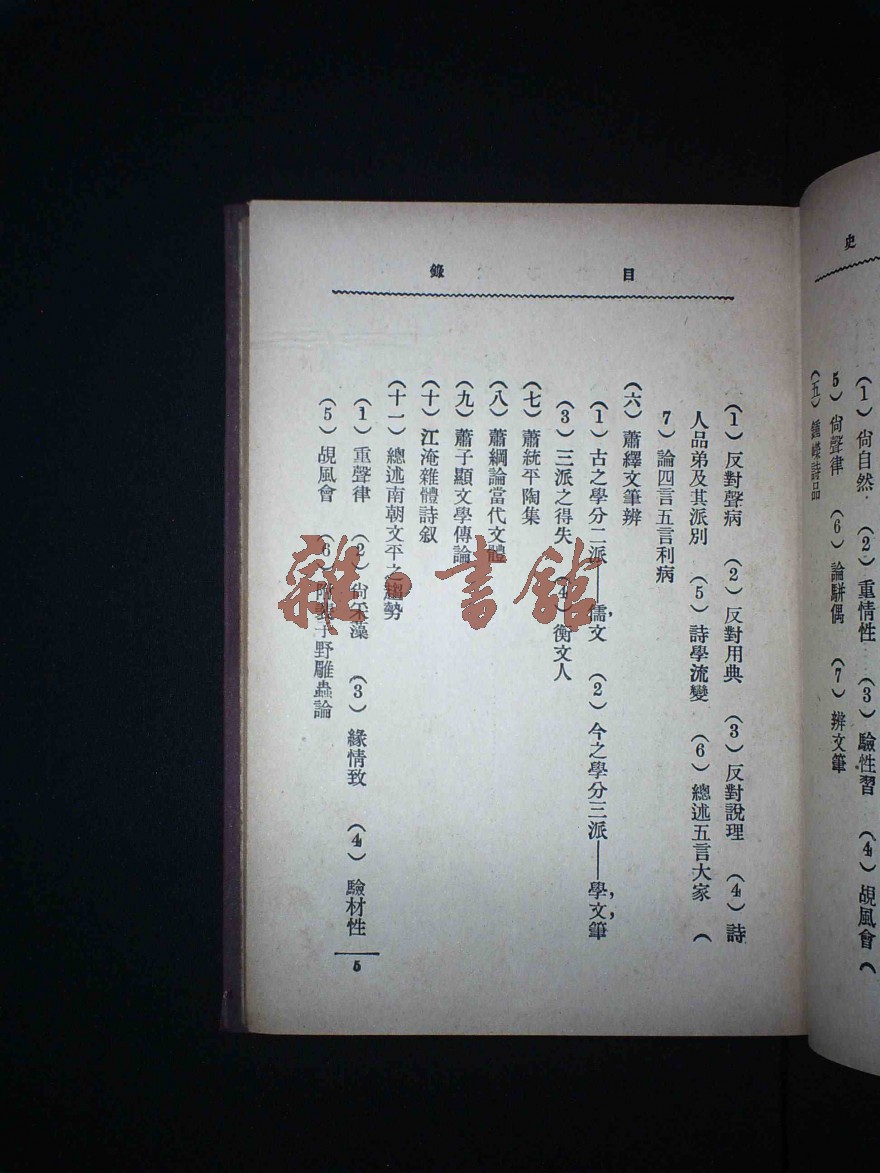 史
（1）尙自然　（2）重情性　（3）驗性習　（4）覘風會（
5）尙聲律　（6）論駢偶　（7）辨文筆
（五）鍾嶸詩品
目錄
（1）反對聲病　（2）反對用典　（3）反對說理　（4）詩
人品弟及其派別　（5）詩學流變　（6）總述五言大家　（
7）論四言五言利病
（六）蕭繹文筆辨
（1）古之學分二派——儒，文　（2）今之學分三派——學，文，筆
（3）三派之得失　（4）衡文人
（七）蕭統平陶集
（八）蕭綱論當代文體
（九）蕭子顯文學傳論
（十）江淹雜體詩叙
（十一）總述南朝文平之趨勢
（1）重聲律　（2）尙采藻　（3）緣情致　（4）驗材性
（5）覘風會　（6）附裴子野雕蟲論
5
雜·書館